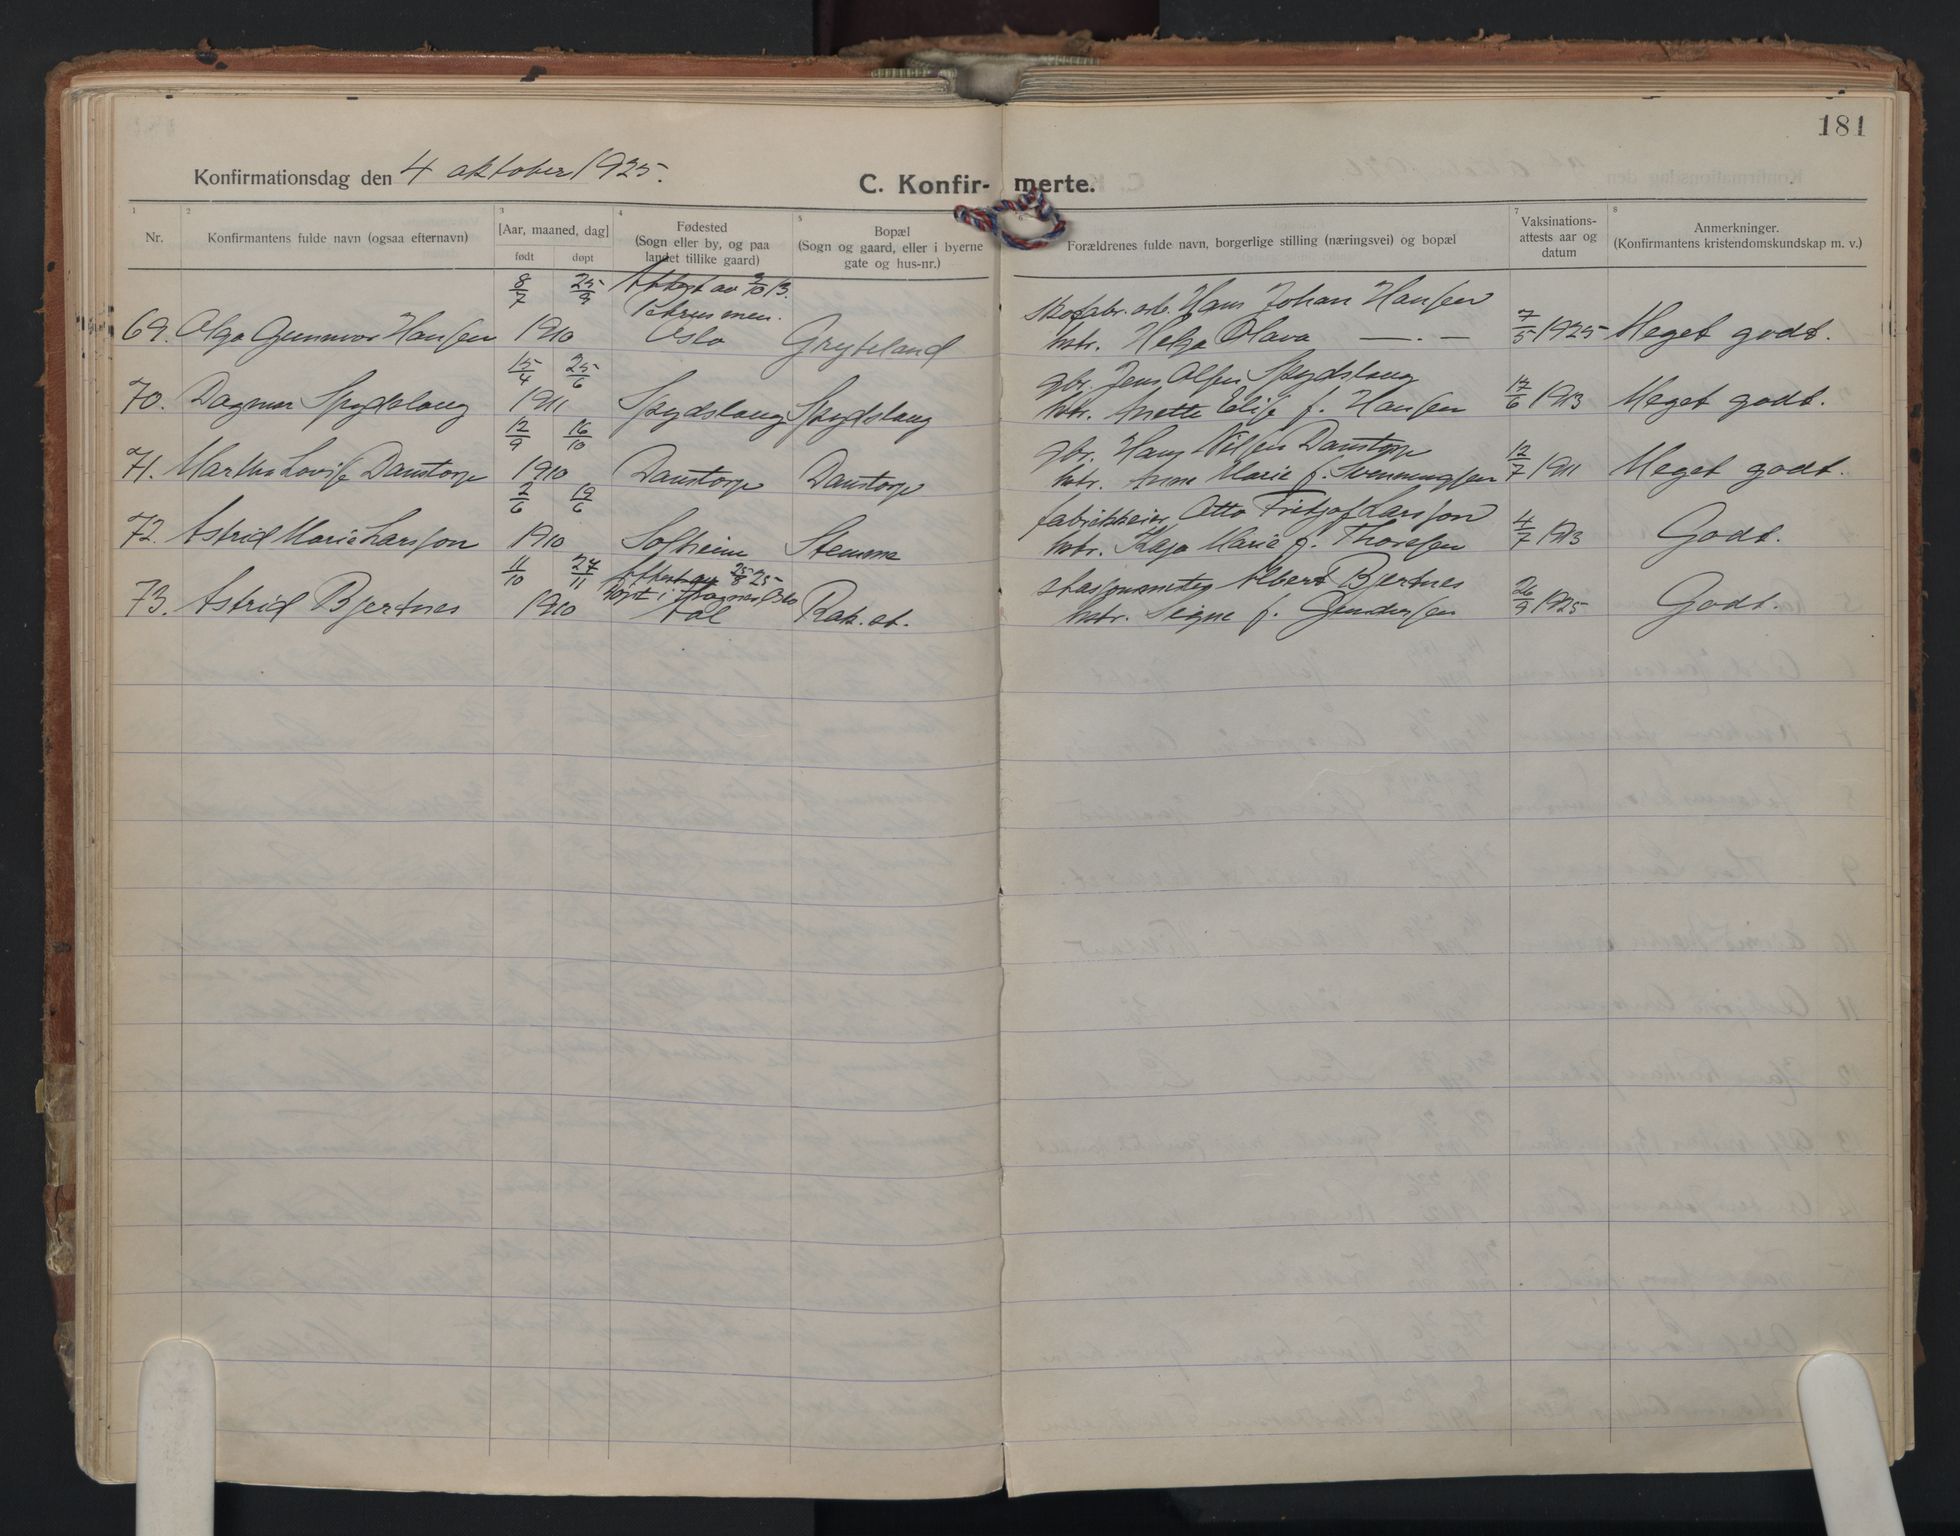 181
Konfirmationsdag den 4 oktober 1925.
C. Konfir- merte.
1 2 3 4 5 6 7 8
Nr.
Konfirmantens fulde navn (ogsaa efternavn)
[Aar, maaned, dag]
født døpt
Fødested
(Sogn eller by, og paa
landet tillike gaard)
Bopæl
(Sogn og gaard, eller i byerne
gate og hus-nr.)
Forældrenes fulde navn, borgerlige stilling (næringsvei) og bopæl
Vaksinations-
attests aar og
datum
Anmerkninger.
(Konfirmantens kristendomskundskap m. v.)
8/7 25/9 Attest av 3/10 13. Skofabr.arb. Hans Johan Hansen
Petrus men.
69. Olga Gunnvor Hansen 1910 Oslo Gryteland hstr. Helga Olava — . — 7/5 1925 Meget godt.
15/4 25/6 gbr. Jens Olsen Spydslaug
70. Dagmar Spydslaug 1911 Spydslaug Spydslaug hstr. Anette Elise f. Hansen 12/6 1913 Meget godt.
12/9 16/10 gbr. Hans Nilsen Danstorp
71. Martha Lovise Danstorp 1910 Danstorp Danstorp hstr. Anna Marie f. Svenningsen 12/7 1911 Meget godt.
2/6 19/6 fabrikkeier Otto Fritjof Larsson
72. Astrid Marie Larsson 1910 Solheim Stemme hstr. Kaja Marie f. Thoresen 4/7 1913 Godt.
11/10 27/11 Attest av 25/8 25 stasjonsmester Albert Bjertnes
døpt i
73. Astrid Bjertnes 1910 Aal Rak. st. hstr. Signe f. Gundersen 26/9 1925 Godt.